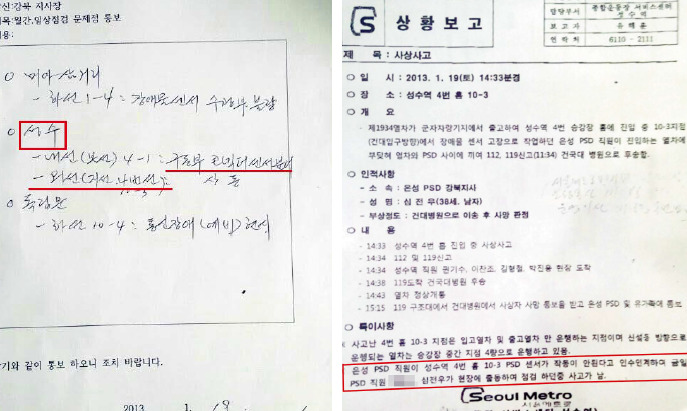 신:강북 지사장
목:월간,일상점검 문제점 통보
용:
○ 미아삼거리
- 하선 1-4 : 장애물센서 수광부 불량
○ 성수
- 내선(본선) 4-1 : 구동부
- 외선(지선,
○ 독립문
- 하선 10-4 : 통신장애 (예비) 현시
기와 같이 통보 하오니 조치 바랍니다.
2013 1.
상 황 보 고
담당부서 종합운동장 서비스센터 성수역
보 고 자
연 락 처 6110 - 2111
제 목 : 사상사고
○ 일 시 : 2013. 1. 19(토) 14:33분경
○ 장 소 : 성수역 4번 홈 10-3
○ 개 요
- 제1934열차가 군자차량기지에서 출고하여 성수역 4번 승강장 홈에 진입 중 10-3지점
(건대입구방향)에서 장애물 센서 고장으로 작업하던 은성 PSD 직원이 진입하는 열차에
부딪혀 열차와 PSD 사이에 끼여 112, 119신고(11:34) 건국대 병원으로 후송함.
○ 인적사항
- 소 속 : 은성 PSD 강북지사
- 성 명 : 심 전 우(38세, 남자)
- 부상정도 : 건대병원으로 이송 후 사망 판정
○ 내 용
- 14:33 성수역 4번 홈 진입 중 사상사고
- 14:34 112 및 119신고
- 14:34 성수역 직원 권기수, 이찬조, 김형철, 박진용 현장 도착
- 14:38 119도착 건국대병원 후송
- 14:43 열차 정상개통
- 15:15 119 구조대에서 건대병원에서 사상자 사망 통보을 받고 은성 PSD 및 유가족에 통보
○ 특이사항
사고난 4번 홈 10-3 지점은 입고열차 및 출고열차 만 운행하는 지점이며 신설동 방향으로
운행되는 열차는 승강장 중간 지점 4량으로 운행하고 있음.
은성 PSD 직원이 성수역 4번 홈 10-3 PSD 센서가 작동이 안된다고 인수인계하며 금일
PSD 직원 심전우가 현장에 출동하여 점검 하던중 사고가 남.
Seoul Metro
서울메트로